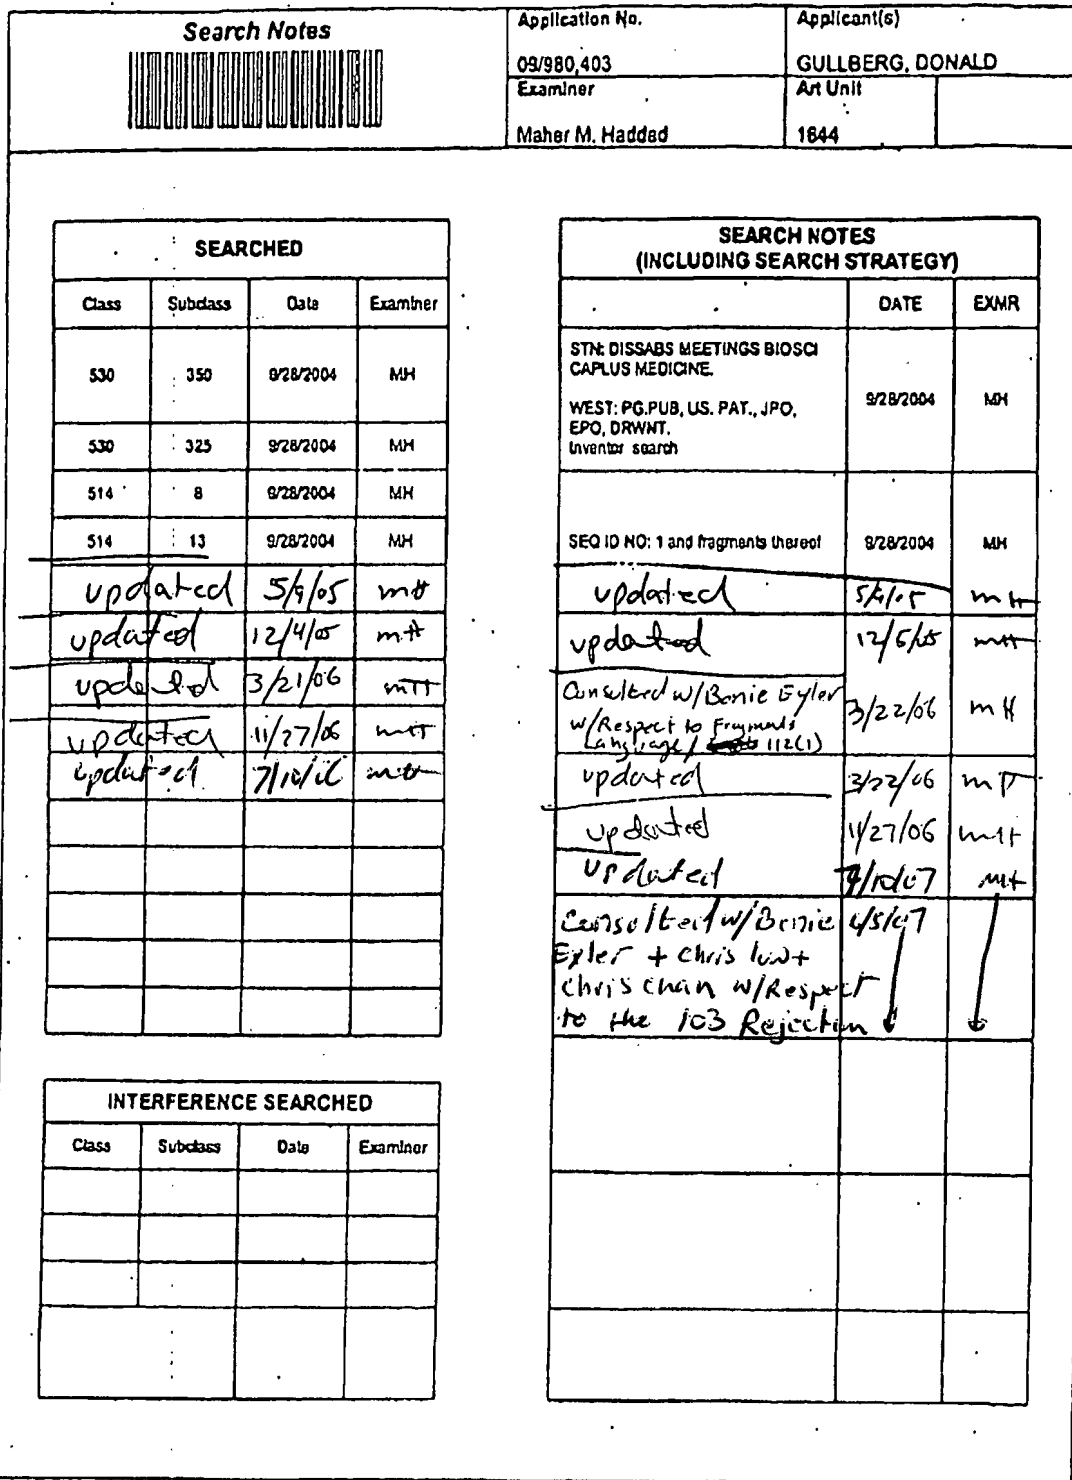 Search Notes
Application No.
09/980,403
Applicant(s)
GULLBERG, DONALD
Examiner
Maher M. Haddad
Art Unit
1644
SEARCHED
Class Subclass Date Examiner
530 350 9/28/2004 MH
530 325 9/28/2004 MH
514 8 9/28/2004 MH
514 13 9/28/2004 MH
updated 5/9/05 MH
updated 12/4/05 MH
updated 3/21/06 MH
updated 11/27/06 MH
updated MH
INTERFERENCE SEARCHED
Class Subclass Date Examiner
SEARCH NOTES
(INCLUDING SEARCH STRATEGY)
DATE EXMR
STN: DISSABS MEETINGS BIOSCI
CAPLUS MEDICINE.
WEST: PG.PUB, US. PAT., JPO,
EPO, DRWNT.
Inventor search
9/28/2004 MH
SEQ ID NO: 1 and fragments thereof 9/28/2004 MH
updated 5/9/05 MH
updated 12/5/05 MH
Consulted w/Bonie Eyler
w/Respect to Fragments
Language/ 112(1)
3/22/06 MH
updated 3/22/06 MH
updated 11/27/06 MH
updated MH
Consulted w/Bonie
Eyler + Chris
Chris Chan w/Respect
to the 103 Rejection